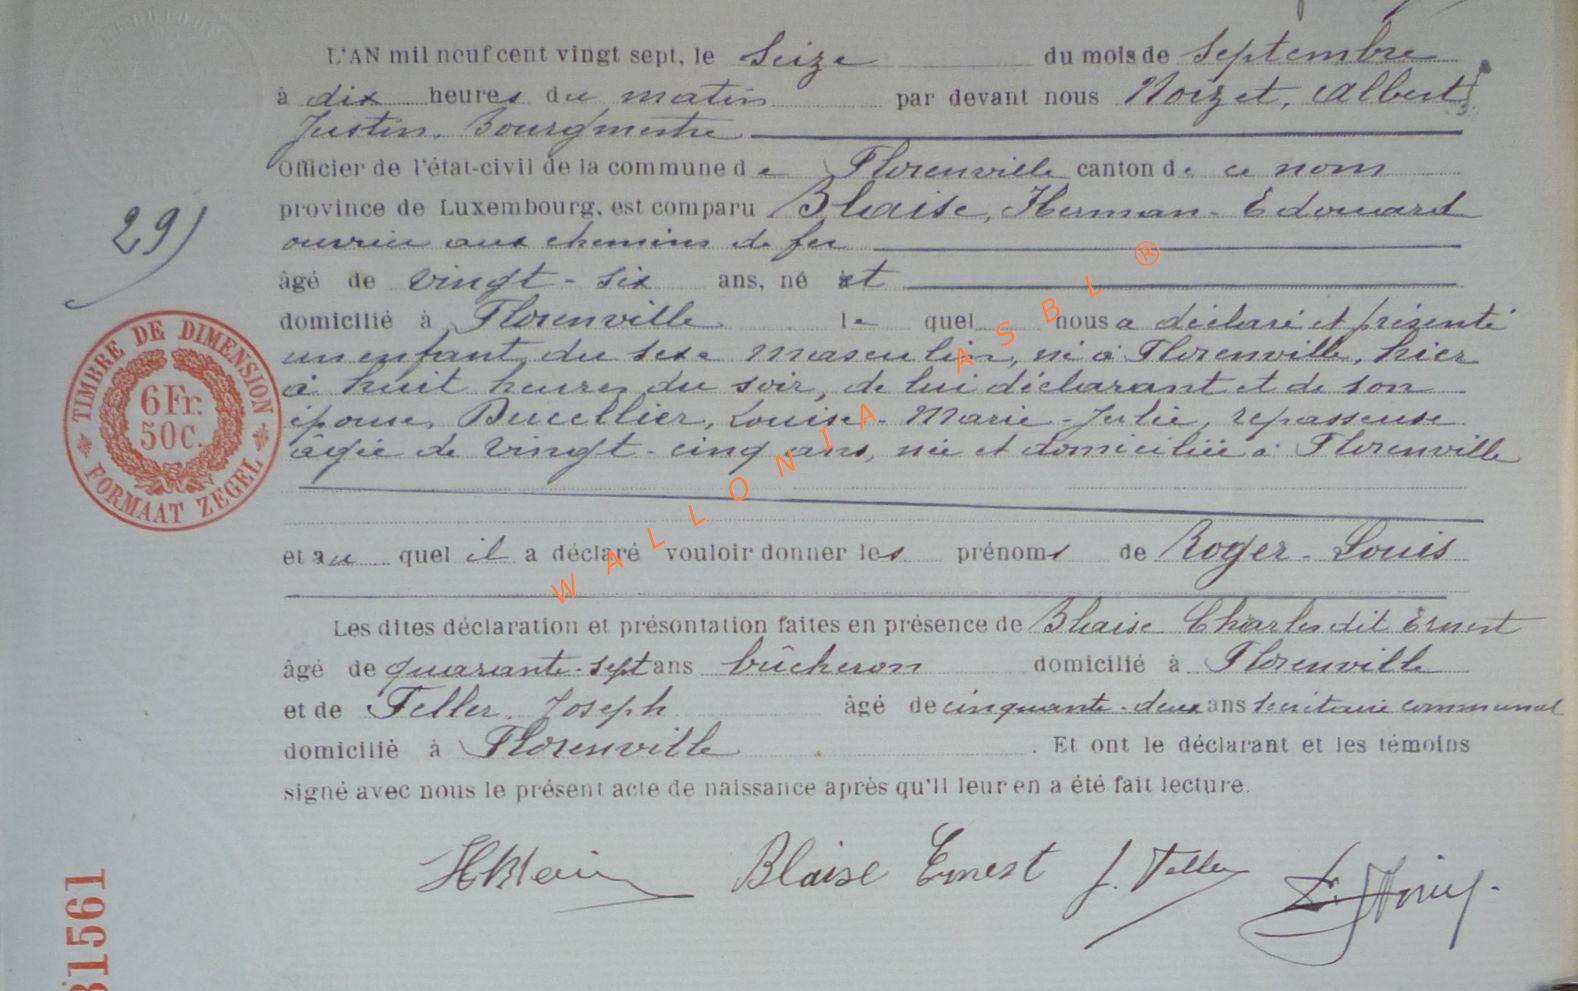 L'AN mil neuf cent vingt sept, le Seize du mois de Septembre
à dix heures du matin par devant nous Noizet, Albert
Justin, Bourgmestre
Officier de l'état-civil de la commune de Florenville canton de ce nom
province de Luxembourg, est comparu Blaise, Herman-Edouard
ouvrier aux chemins de fer
29)
âgé de vingt-six ans, né et
domicilié à Florenville le quel nous a déclaré et présenté
un enfant du sexe masculin, né à Florenville, hier
à huit heures du soir, de lui déclarant et de son
épouse, Ducellier, Louise-Marie-Julie, repasseuse
âgée de vingt-cinq ans, née et domiciliée à Florenville
TIMBRE DE DIMENSION
6 Fr.
50 C.
FORMAAT ZEGEL
et au quel il a déclaré vouloir donner les prénoms de Roger-Louis
WALLONIA ASBL ®
Les dites déclaration et présontation faites en présence de Blaise Charles dit Ernest
âgé de quarante-sept ans bûcheron domicilié à Florenville
et de Feller, Joseph âgé de cinquante-deux ans secrétaire communal
domicilié à Florenville. Et ont le déclarant et les témoins
signé avec nous le présent acte de naissance après qu'il leur en a été fait lecture.
HBlaise Blaise Ernest J. Feller
31561